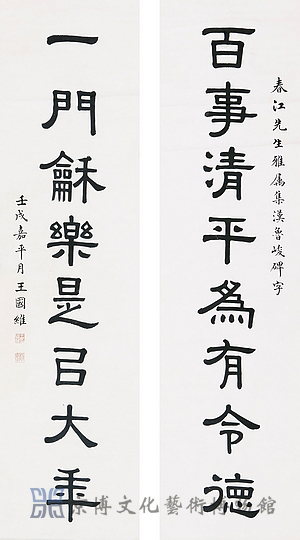 春江先生雅屬集漢魯峻碑字
百事清平為有令德
一門龢樂是㠯大年
壬戌嘉平月王國維
京博文化藝術博物館